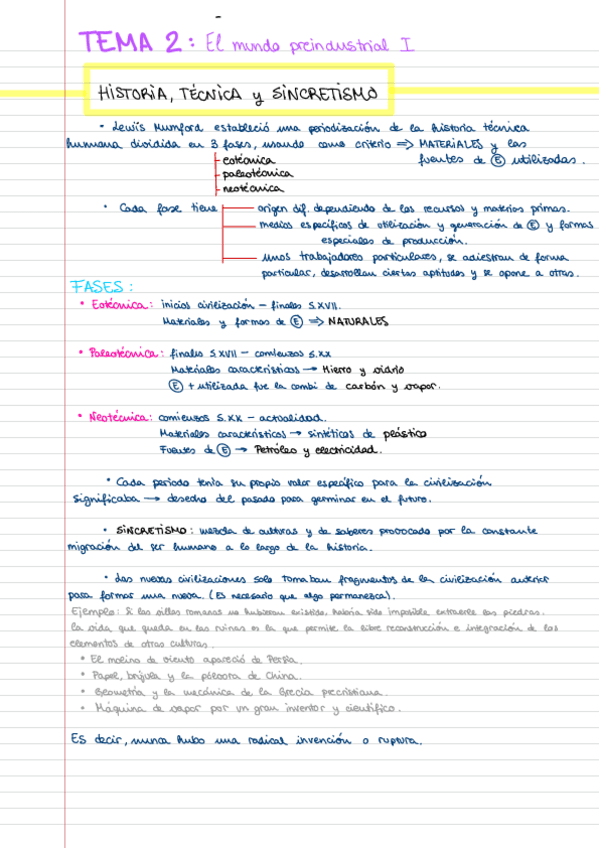 TEMA 2: El mundo preindustrial I
HISTORIA, TÉCNICA y SINCRETISMO
· Lewis Mumford estableció una periodización de la historia técnica
humana dividida en 3 fases, usando como criterio ⇒ MATERIALES y las
fuentes de Ⓔ utilizadas.
eotécnica
paleotécnica
neotécnica
· Cada fase tiene
origen dif. dependiendo de los recursos y materias primas.
medios específicos de utilización y generación de Ⓔ y formas
especiales de producción.
unos trabajadores particulares, se adiestran de forma
particular, desarrollan ciertas aptitudes y se opone a otras.
FASES:
• Eotécnica: inicios civilización – finales S.XVII.
Materiales y formas de Ⓔ ⇒ NATURALES
• Paleotécnica: finales S.XVII – comienzos S.XX
Materiales característicos → Hierro y vidrio
Ⓔ + utilizada fue la combi de carbón y vapor.
• Neotécnica: comienzos S.XX – actualidad.
Materiales característicos → sintéticos de plástico
Fuentes de Ⓔ → Petróleo y electricidad.
· Cada periodo tenía su propio valor específico para la civilización
significaba → desecho del pasado para germinar en el futuro.
· SINCRETISMO: mezcla de culturas y de saberes provocado por la constante
migración del ser humano a lo largo de la historia.
· Las nuevas civilizaciones solo tomaban fragmentos de la civilización anterior
para formar una nueva. (Es necesario que algo permanezca).
Ejemplo: Si las villas romanas no hubiesen existido, habría sido imposible extraerle las piedras.
La vida que queda en las ruinas es la que permite la libre reconstrucción e integración de los
elementos de otras culturas.
• El molino de viento apareció de Persia.
• Papel, brújula y la pólvora de China.
• Geometría y la mecánica de la Grecia precristiana.
• Máquina de vapor por un gran inventor y científico.
Es decir, nunca hubo una radical invención o ruptura.